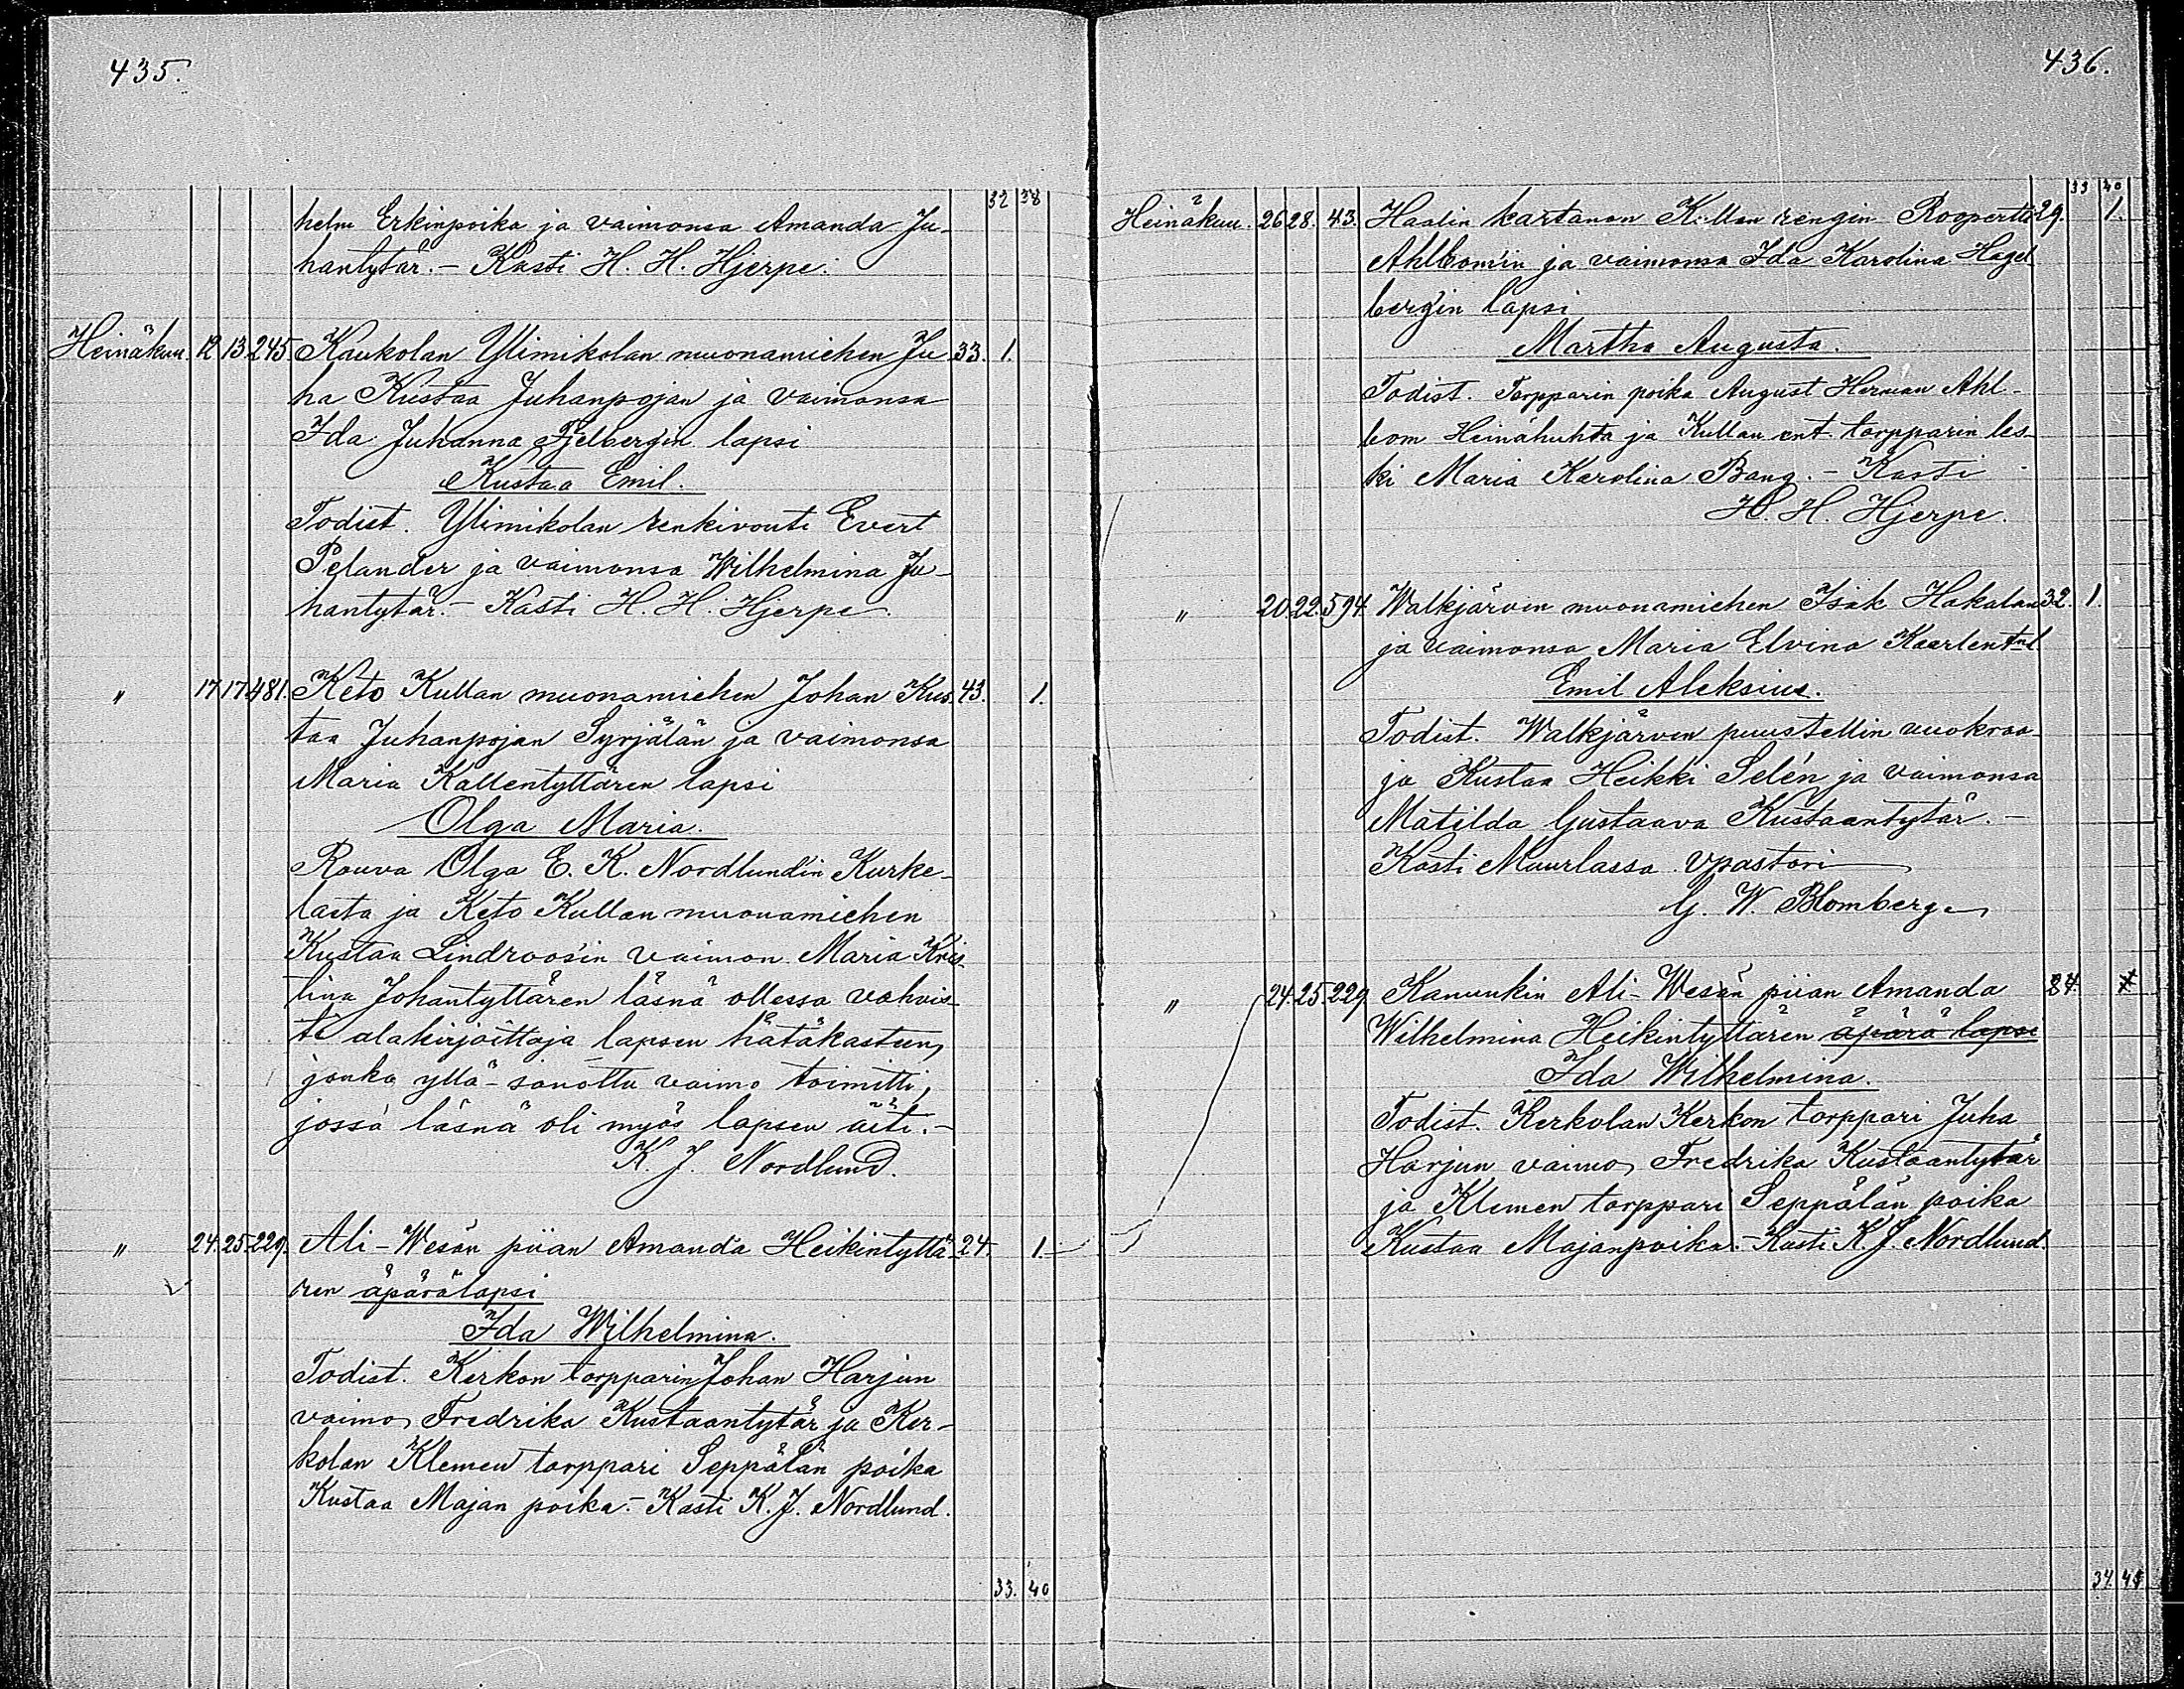 435.
32 38
helm Erkinpoika ja vaimonsa Amanda Ju-
hantytär. - Kasti H. H. Hjerpe.
Heinäkuu. 12 13 245. Kaukolan Ylimikolan muonamiehen Ju 33. 1.
ha Kustaa Juhanpojan ja vaimonsa
Ida Juhanna Fjelbergin lapsi
Kustaa Emil.
Todist. Ylimikolan renkivouti Evert
Pelander ja vaimonsa Wilhelmina Ju-
hantytär. - Kasti H. H. Hjerpe.
" 17 17 481. Keto Kullan muonamiehen Johan Kus- 43. 1.
taa Juhanpojan Syrjälän ja vaimonsa
Maria Kallentyttären lapsi
Olga Maria.
Rouva Olga E. K. Nordlundin Kurke-
lasta ja Keto Kullan muonamiehen
Kustaa Lindroos'in vaimon Maria Kris-
tina Johantyttären läsnä ollessa vahvis-
ti alakirjoittaja lapsen hätäkasteen,
jonka yllä-sanottu vaimo toimitti,
jossa läsnä oli myös lapsen äiti. -
K. J. Nordlund.
" 24. 25. 229. Ali-Wesän piian Amanda Heikintyttä- 24. 1.
ren äpärälapsi
Ida Wilhelmina.
Todist. Kerkon torpparin Johan Harjun
vaimo Fredrika Kustaantytär ja Ker-
kolan Klemen torppari Seppälän poika
Kustaa Majan poika. - Kasti K. J. Nordlund.
33. 40
436.
33 40
Heinäkuu. 26 28. 43. Haalin kartanon Kullan rengin Roopertti 29. 1.
Ahlbom'in ja vaimonsa Ida Karolina Hagel-
bergin lapsi
Martha Augusta.
Todist. Torpparin poika August Herman Ahl-
bom Heinähuhta ja Kullan ent. torpparin les-
ki Maria Karolina Bang. - Kasti
H. H. Hjerpe.
" 20. 22. 594. Walkjärven muonamiehen Isak Hakalan 32. 1.
ja vaimonsa Maria Elvina Kaarlent.
Emil Aleksius.
Todist. Walkjärven puustellin vuokraa-
ja Kustaa Heikki Selén ja vaimonsa
Matilda Gustaava Kustaantytär. -
Kasti Muurlassa vpastori
G. W. Blomberg
" 24. 25. 229. Kanunkin Ali-Wesän piian Amanda 84.
Wilhelmina Heikintyttären äpärä lapsi
Ida Wilhelmina.
Todist. Kerkolan Kerkon torppari Juha
Harjun vaimo, Fredrika Kustaantytär
ja Klemen torppari Seppälän poika
Kustaa Majanpoika. - Kasti K. J. Nordlund.
34. 41